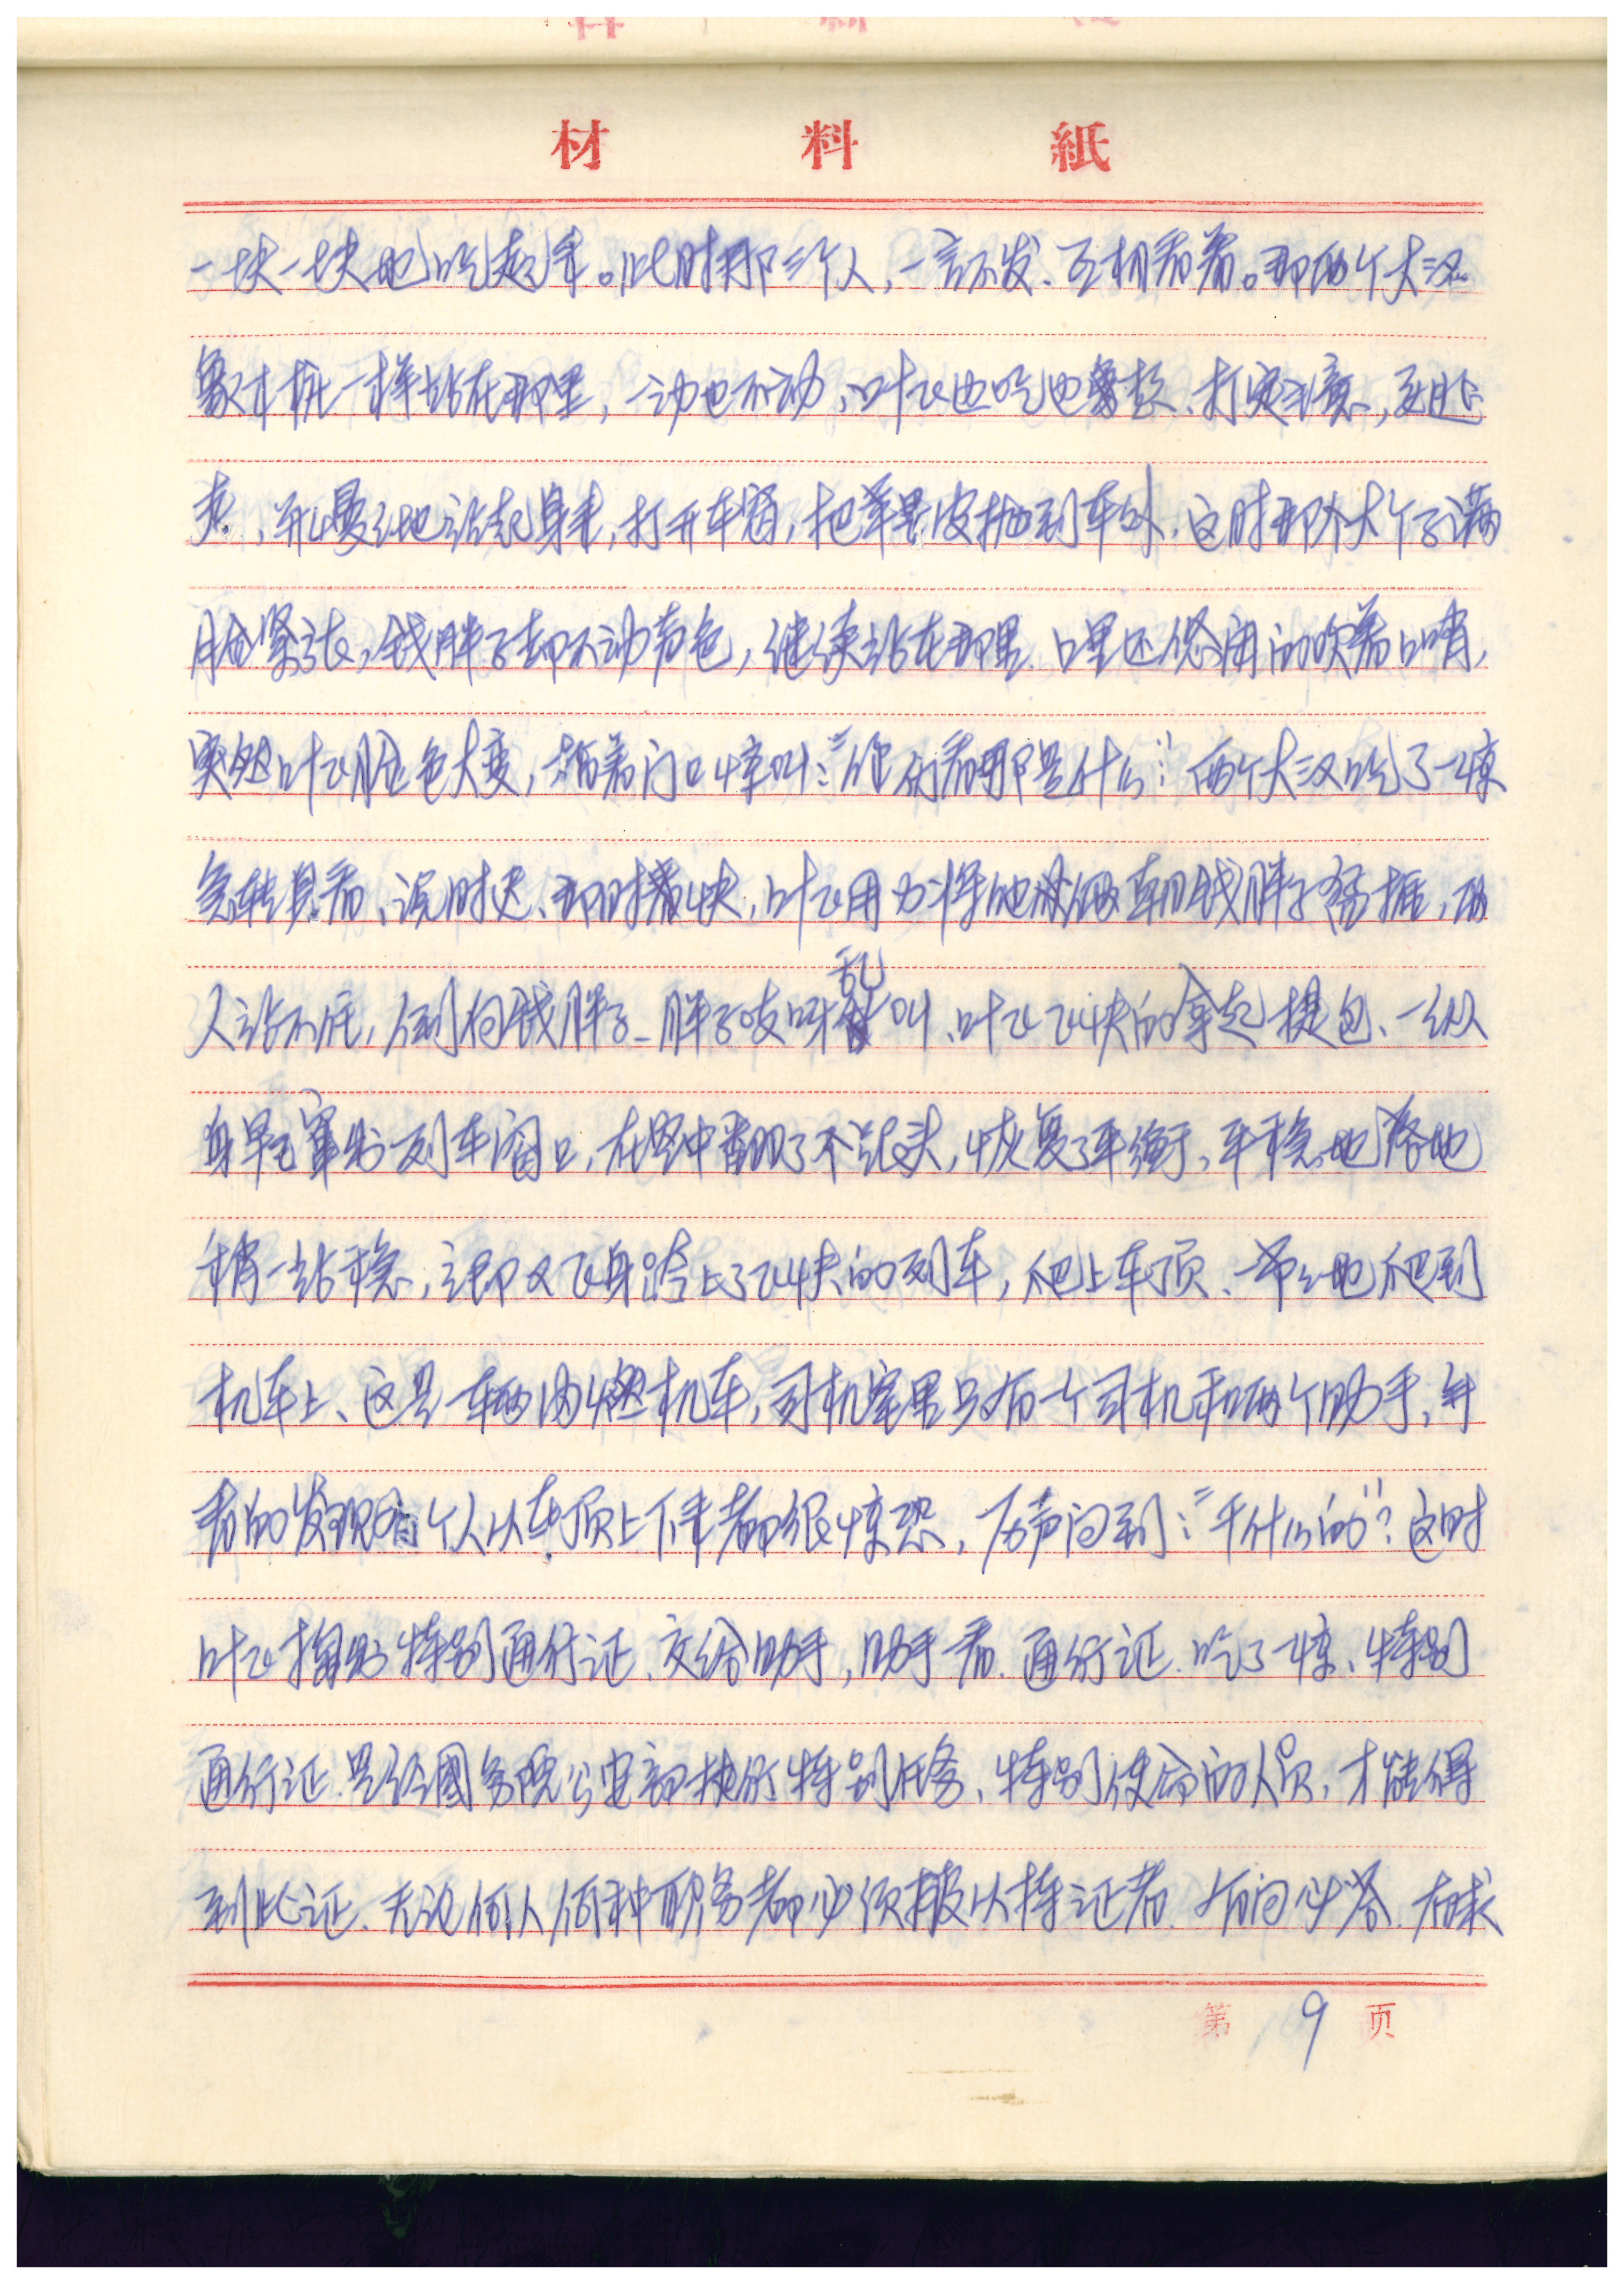 材料紙
一块一块地吃起来。此时那三个人，一言不发、互相看着。那两个大汉
象木桩一样站在那里，一动也不动、叶飞也吃也想、打定主意，逃
走，并慢慢地站起身来，打开车窗，把苹果皮抛到车外，这时那个大个子满
脸紧张，钱胖子却不动声色，继续站在那里、口里还悠闲的吹着口哨，
突然叶飞脸色大变，指着门口惊叫：“你们看那是什么”？两个大汉吃了一惊
急转身看、说时迟、那时快，叶飞用力将他俩朝钱胖子猛推，两
人站不住，倒向钱胖子_胖子吱呀乱叫、叶飞飞快的拿起提包、一纵
身早已窜出列车窗口，在空中翻了个跟头，恢复了平衡，平稳地落地
稍一站稳，立即又飞身跨上了飞快的列车，爬上车顶、一步步地爬到
机车上、这是一车辆内燃机车，司机室里只有一个司机和两个助手，
看的发现有个人从车顶上下来都很惊恐，厉声问到：“干什么的”？这时
叶飞掏出特别通行证、交给助手，助手一看、通行证、吃了一惊、特别
通行证、是经國务院公安部执行特别任务、特别使命的人员，才能得
到此证、无论何人何种职务都必须报以持证者、有问必答、有求
第 9 页